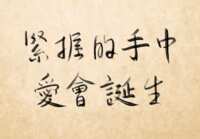 緊握的手中
愛會誕生